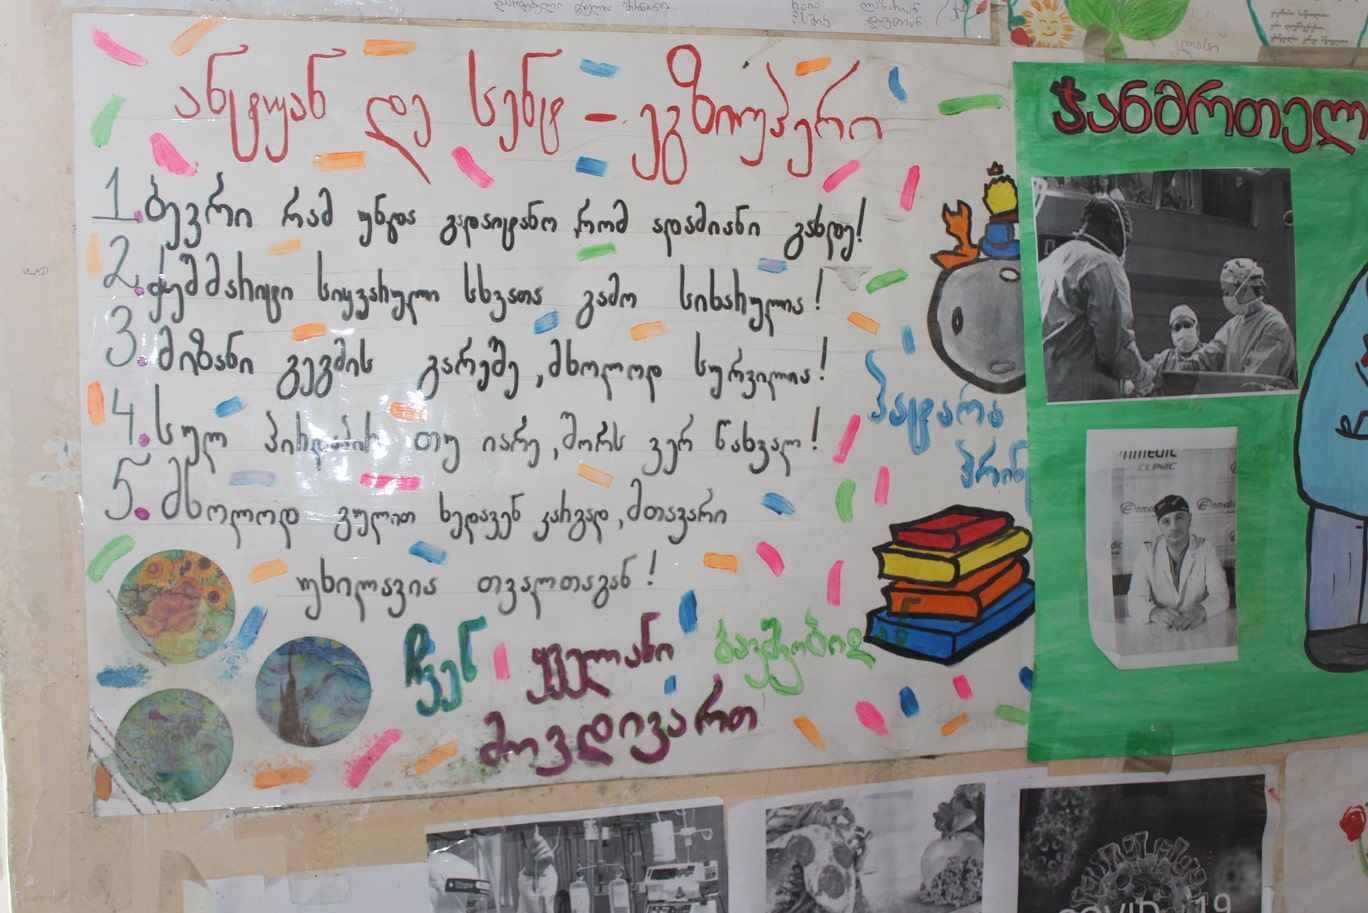 ანტუან დე სენტ - ეგზიუპერი
1. ბევრი რამ უნდა გადაიტანო რომ ადამიანი გახდე!
2. ჭეშმარიტი სიყვარული სხვათა გამო სიხარულია!
3. მიზანი გეგმის გარეშე, მხოლოდ სურვილია!
4. სულ პირდაპირ თუ ივლი, შორს ვერ წახვალ!
5. მხოლოდ გულით ხედავენ კარგად, მთავარი
უხილავია თვალთაგან!
ჩვენ ყველანი ბავშვობიდან
მოვდივართ
პატარა
პრინ
ჯანმრთელ
nmedic
CLINIC
Enmedic
COVID-19